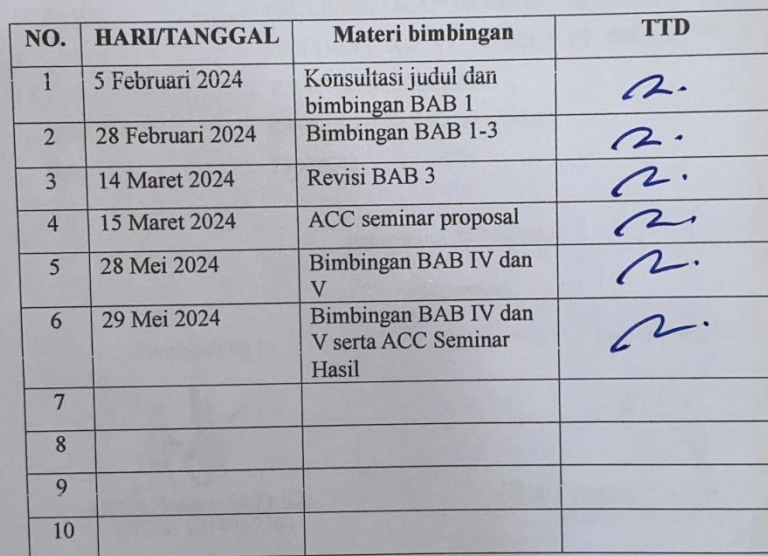 NO. HARI/TANGGAL Materi bimbingan TTD
1 5 Februari 2024 Konsultasi judul dan
bimbingan BAB 1
2 28 Februari 2024 Bimbingan BAB 1-3
3 14 Maret 2024 Revisi BAB 3
4 15 Maret 2024 ACC seminar proposal
5 28 Mei 2024 Bimbingan BAB IV dan
V
6 29 Mei 2024 Bimbingan BAB IV dan
V serta ACC Seminar
Hasil
7
8
9
10